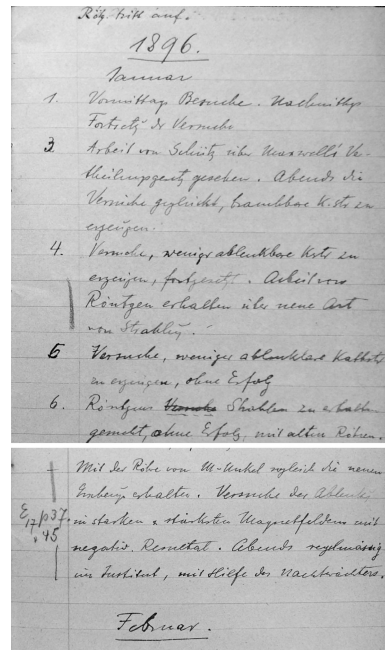 Rötg. tritt auf!
1896.
Januar
1. Vormittags Besuche. Nachmittgs
Fortsetzg der Versuche
3. Arbeit von Schütz über Maxwell's Ver-
theilungsgesetz gesehen. Abends die
Versuche geglückt, brauchbare K.str zu
erzeugen.
4. Versuche, weniger ablenkbare Kstr zu
erzeugen, fortgesetzt. Arbeit von
Röntgen erhalten über neue Art
von Strahlg.
5 Versuche, weniger ablenkbare Kathstr
zu erzeugen, ohne Erfolg
6. Röntgens Versuche Strahlen zu erhalten
gesucht, ohne Erfolg, mit alten Röhren.
Mit der Röhre von M-Unkel sogleich die neuen
erhalten. Versuche der Ablenkg
in starken u stärksten Magnetfeldern mit
negativ. Resultat. Abends regelmässig
im Institut, mit Hilfe des Nachtwächters.
E
17/p37.
. 45
Februar.